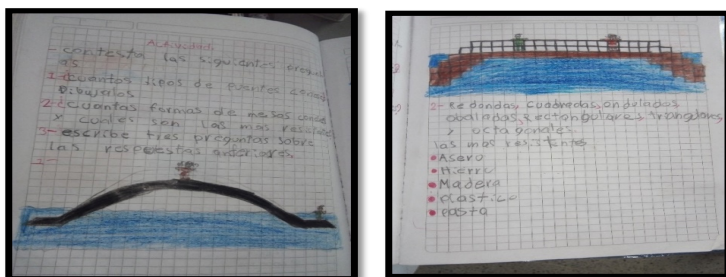 Actividad.
- contesta las siguientes pregun
as
1-¿cuantos tipos de puentes conoces
Dibujalos
2-¿cuantas formas de mesas conoce
y cuales son las mas resisten
3-escribe tres preguntas sobre
las respuestas anteriores.
1-
2- Redondas, cuadradas, onduladas
obaladas, Rectangulares, triangulares,
y octagonales.
las mas resistentes
• Asero
• Hierro
• Madera
• plastico
• pasta